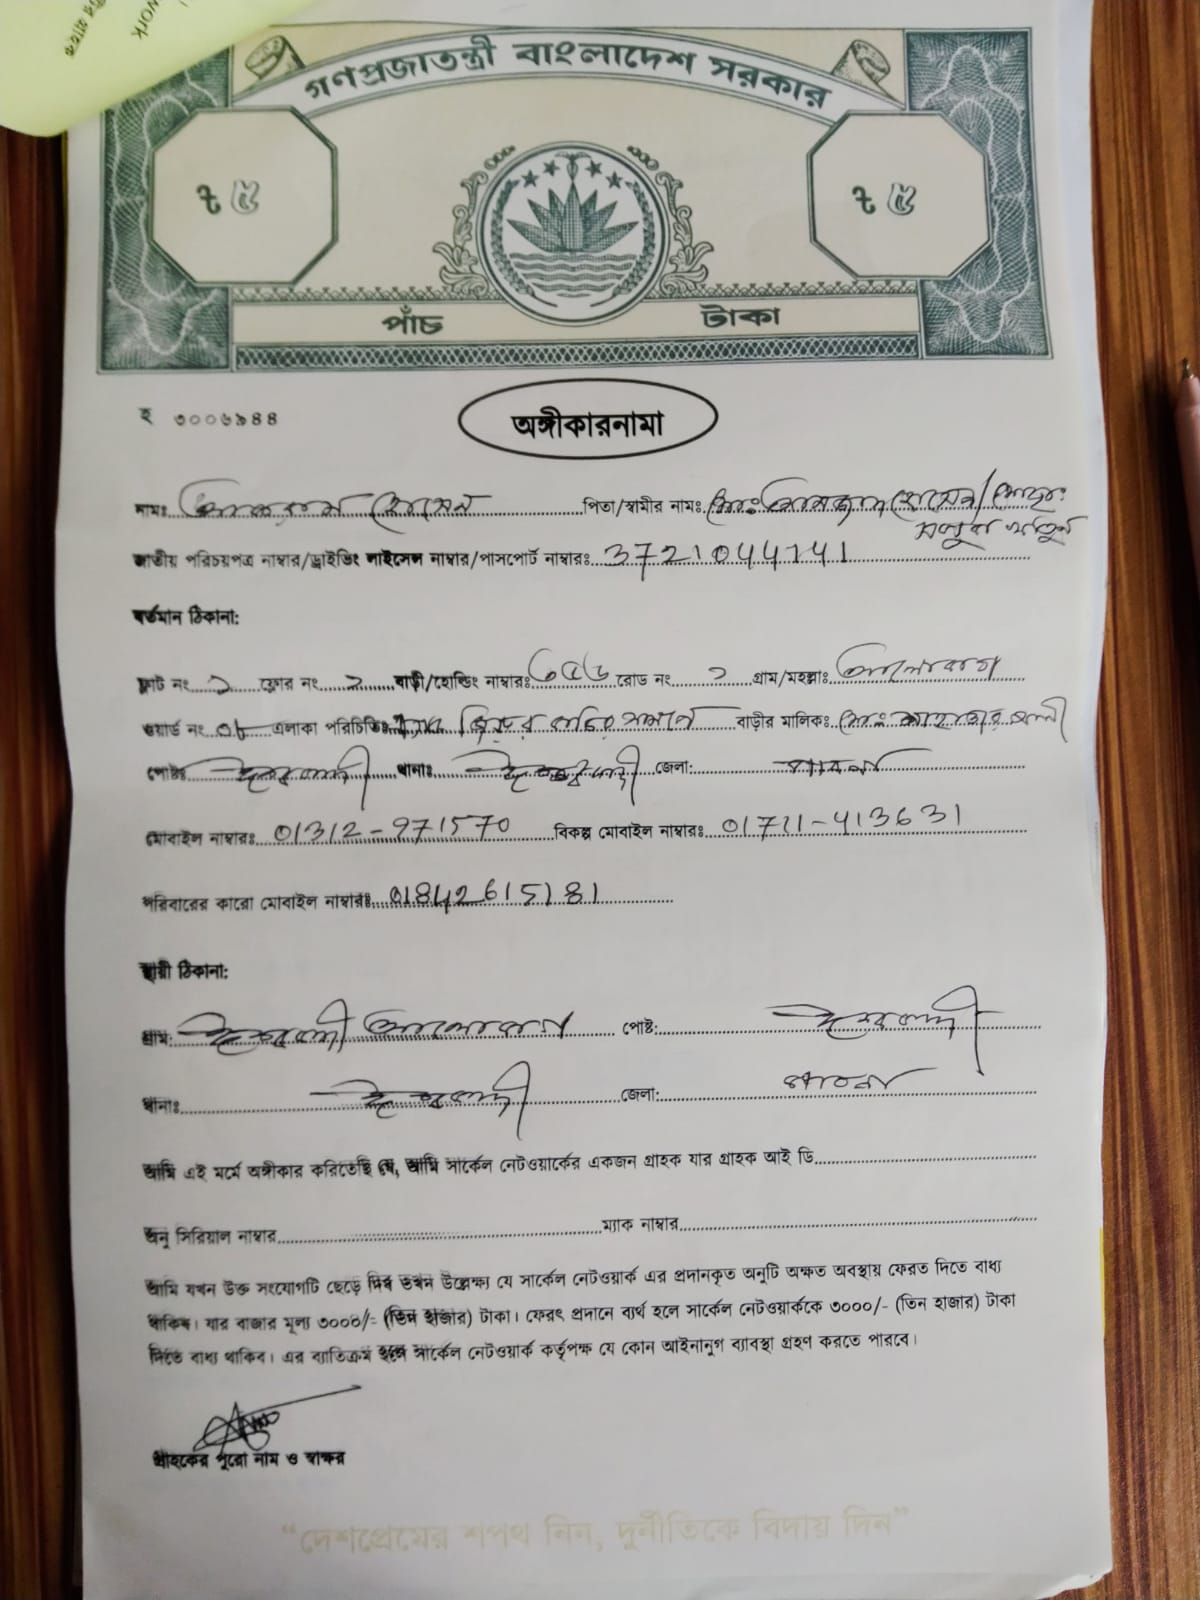 work
গণপ্রজাতন্ত্রী বাংলাদেশ সরকার
৳ ৫ ৳ ৫
পাঁচ টাকা
হ ৩০০৬৯৪৪
অঙ্গীকারনামা
নামঃ হোসেন পিতা/স্বামীর নামঃ মোঃ হোসেন/মোছাঃ
খাতুন
জাতীয় পরিচয়পত্র নাম্বার/ড্রাইভিং লাইসেন্স নাম্বার/পাসপোর্ট নাম্বারঃ 3721044741
বর্তমান ঠিকানা:
ফ্লাট নং ফ্লোর নং বাড়ী/হোল্ডিং নাম্বারঃ রোড নং গ্রাম/মহল্লাঃ
ওয়ার্ড নং এলাকা পরিচিতিঃ বাড়ীর মালিকঃ মোঃ আলী
পোষ্টঃ ঈশ্বরদী থানাঃ ঈশ্বরদী জেলা: পাবনা
মোবাইল নাম্বারঃ 01312-971570 বিকল্প মোবাইল নাম্বারঃ 01721-413631
পরিবারের কারো মোবাইল নাম্বারঃ 01842615181
স্থায়ী ঠিকানা:
গ্রাম: ঈশ্বরদী পোষ্ট: ঈশ্বরদী
থানাঃ ঈশ্বরদী জেলা: পাবনা
আমি এই মর্মে অঙ্গীকার করিতেছি যে, আমি সার্কেল নেটওয়ার্কের একজন গ্রাহক যার গ্রাহক আই ডি
অনু সিরিয়াল নাম্বার ম্যাক নাম্বার
আমি যখন উক্ত সংযোগটি ছেড়ে দিব তখন উল্লেক্ষ্য যে সার্কেল নেটওয়ার্ক এর প্রদানকৃত অনুটি অক্ষত অবস্থায় ফেরত দিতে বাধ্য
থাকিব। যার বাজার মূল্য ৩০০০/- (তিন হাজার) টাকা। ফেরৎ প্রদানে ব্যর্থ হলে সার্কেল নেটওয়ার্ককে ৩০০০/- (তিন হাজার) টাকা
দিতে বাধ্য থাকিব। এর ব্যতিক্রম হলে সার্কেল নেটওয়ার্ক কর্তৃপক্ষ যে কোন আইনানুগ ব্যবস্থা গ্রহণ করতে পারবে।
গ্রাহকের পুরো নাম ও স্বাক্ষর
“দেশপ্রেমের শপথ নিন, দুর্নীতিকে বিদায় দিন”